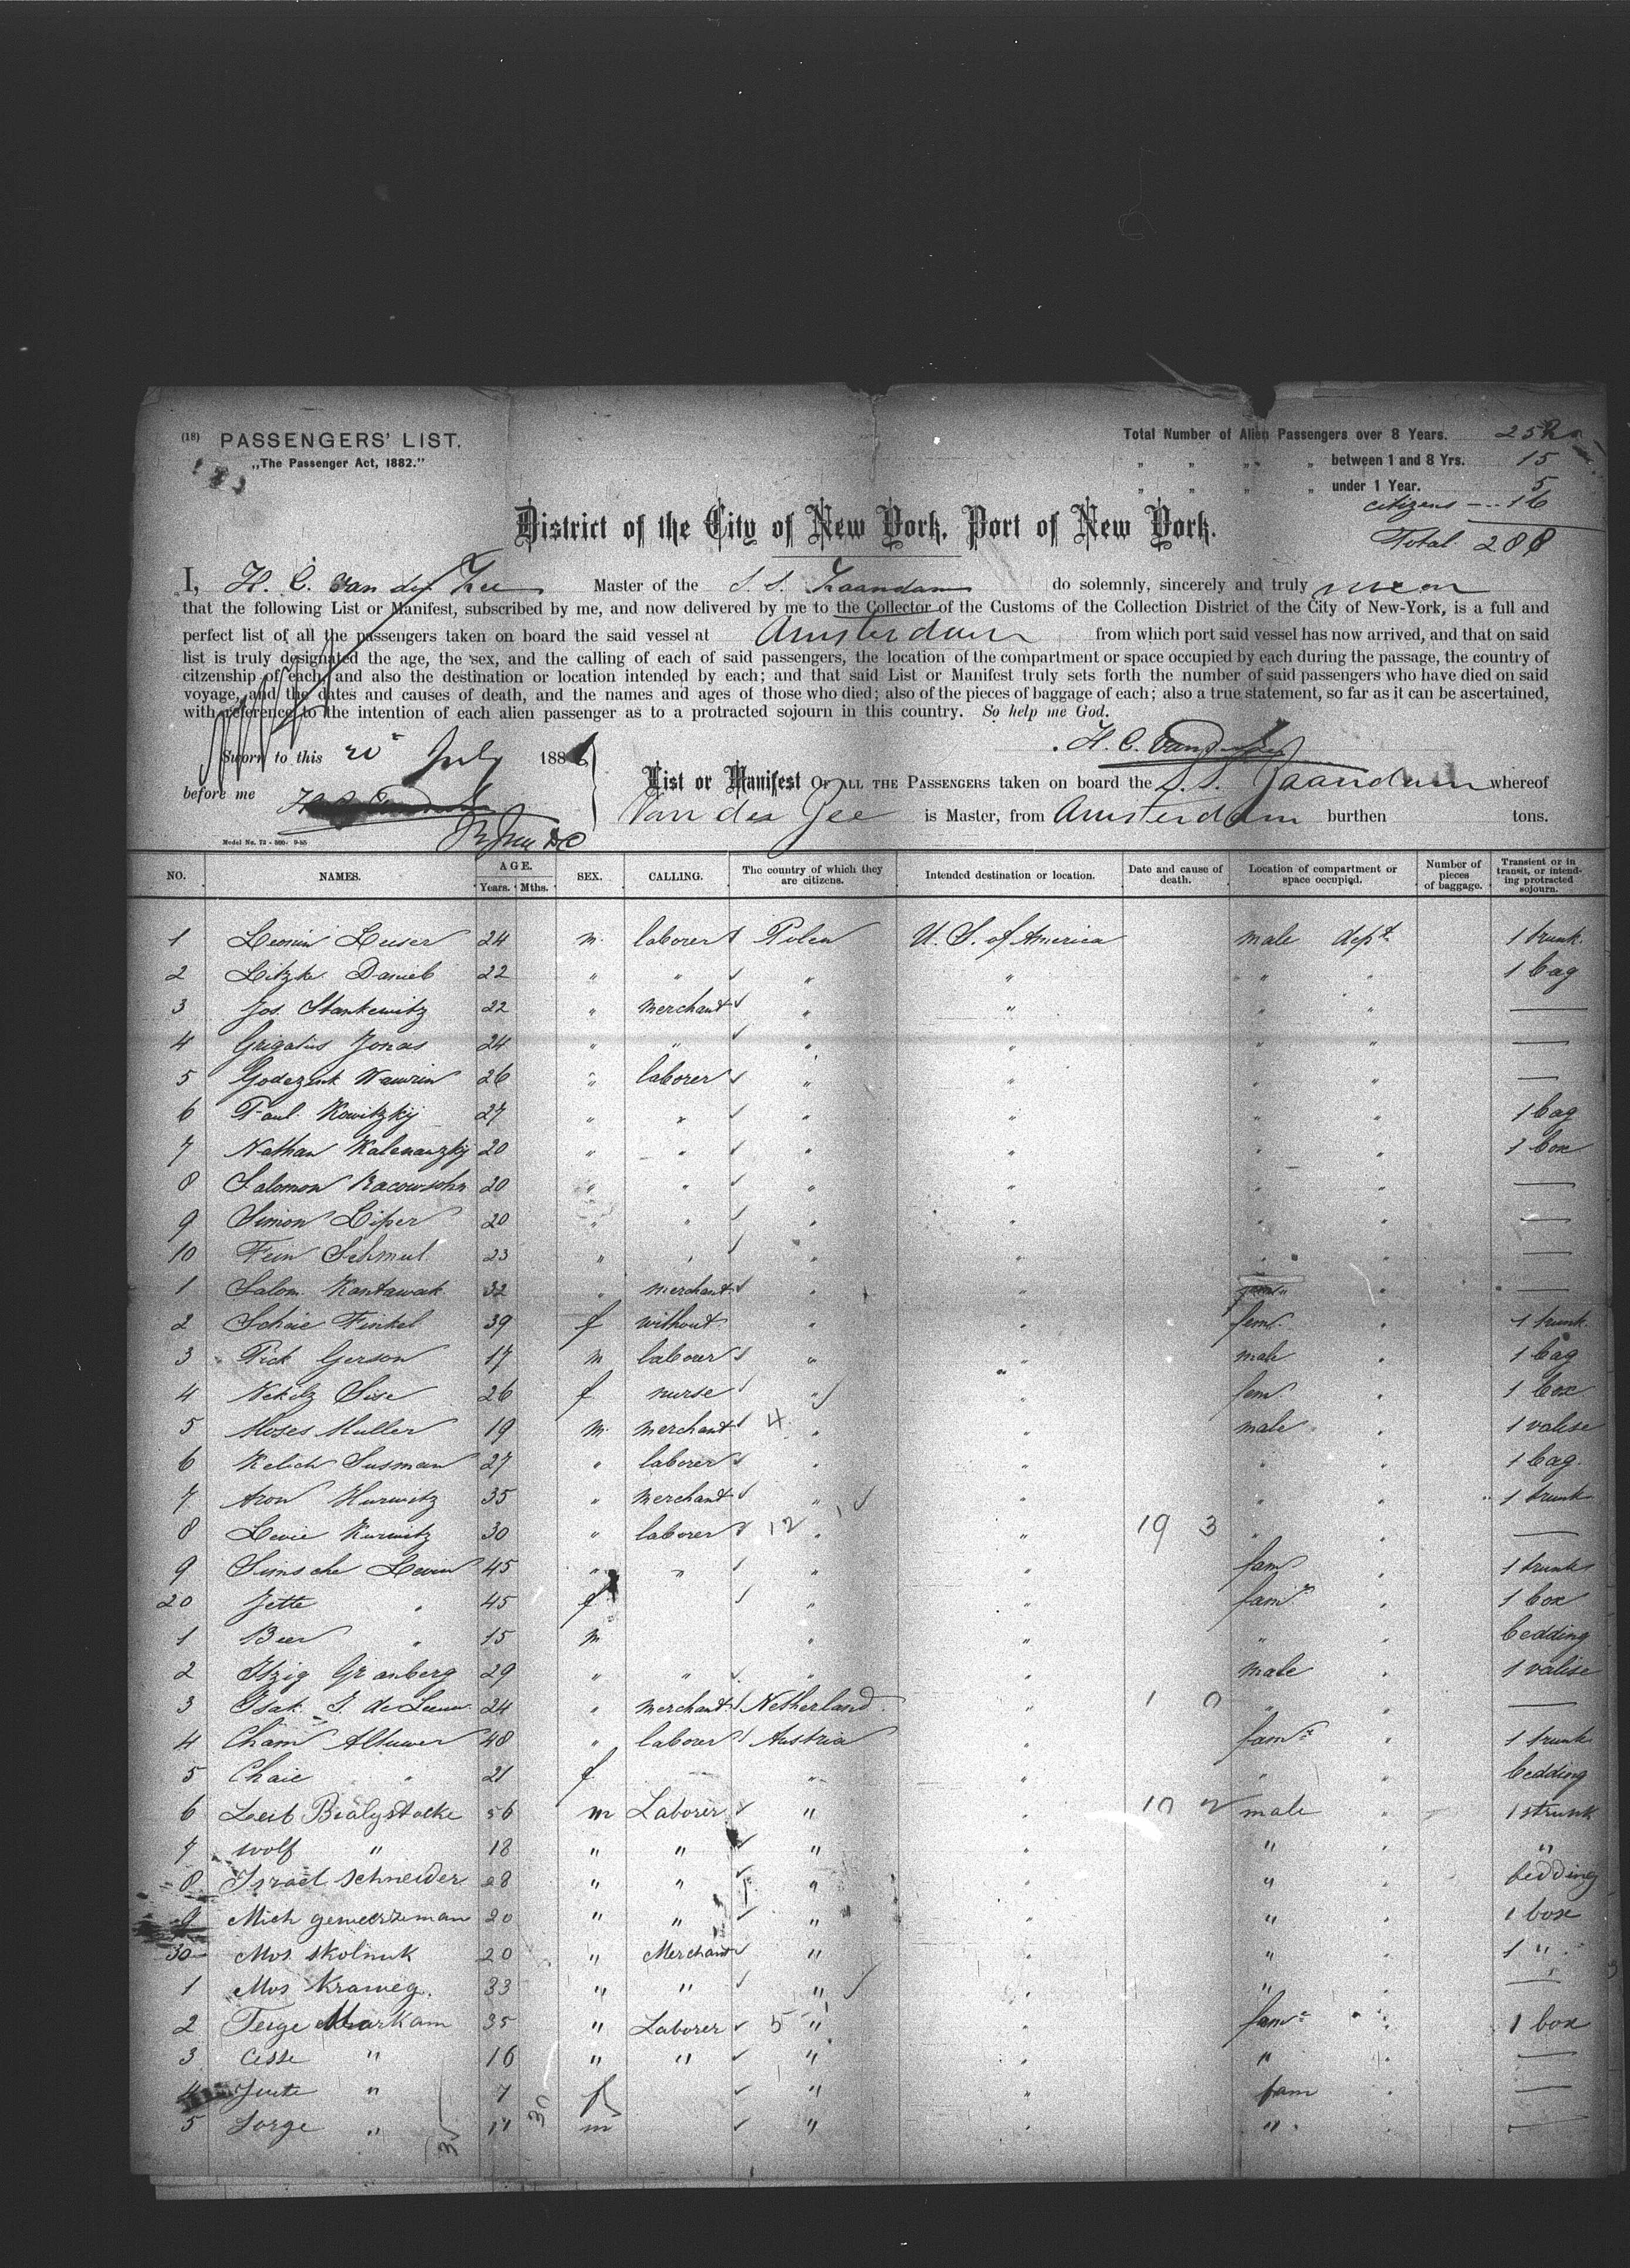 (18) PASSENGERS' LIST.
„The Passenger Act, 1882."
Total Number of Alien Passengers over 8 Years. 252
„ „ „ „ between 1 and 8 Yrs. 15
„ „ „ „ under 1 Year. 5
citizens --- 16
Total 288
District of the City of New York, Port of New York.
I, H. C. van der Zee Master of the S. S. Zaandam do solemnly, sincerely and truly swear
that the following List or Manifest, subscribed by me, and now delivered by me to the Collector of the Customs of the Collection District of the City of New-York, is a full and
perfect list of all the passengers taken on board the said vessel at Amsterdam from which port said vessel has now arrived, and that on said
list is truly designated the age, the sex, and the calling of each of said passengers, the location of the compartment or space occupied by each during the passage, the country of
citzenship of each, and also the destination or location intended by each; and that said List or Manifest truly sets forth the number of said passengers who have died on said
voyage, and the dates and causes of death, and the names and ages of those who died; also of the pieces of baggage of each; also a true statement, so far as it can be ascertained,
with reference to the intention of each alien passenger as to a protracted sojourn in this country. So help me God.
H. C. van der Zee
Sworn to this 20 July 1886
before me
List or Manifest OF ALL THE PASSENGERS taken on board the S. S. Zaandam whereof
Van der Zee is Master, from Amsterdam burthen tons.
Model No. 72 - 300- 9-85
NO. NAMES. AGE. Years. Mths. SEX. CALLING. The country of which they are citizens. Intended destination or location. Date and cause of death. Location of compartment or space occupied. Number of pieces of baggage. Transient or in transit, or intending protracted sojourn.
1 Leiser 24 m. laborer Polen U. S. of America male dept. 1 trunk.
2 Litzke Daniel 22 " " " " " " 1 bag
3 Jos. Stankewitz 22 " merchant " " " " —
4 Grigatus Jonas 24 " " " " " " —
5 Godezink Wawrin 26 " laborer " " " " —
6 Paul Kowitzkij 27 " " " " " " 1 bag
7 Nathan 20 " " " " " " 1 box
8 Salomon Racowsohn 20 " " " " " " —
9 Simon Liper 20 " " " " " " —
10 Fein Schmul 23 " " " " " " —
1 Salom. Kantawak 32 " merchant " " " —
2 Schaie Finkel 39 f without " " fem. " 1 trunk.
3 Pick Gerson 17 m laborer " " male " 1 bag
4 Nekilz Sise 26 f nurse " " fem " 1 box
5 Moses Muller 19 m. merchant 4 " " male " 1 valise
6 Kelich Susman 27 " laborer " " " " 1 bag.
7 Aron Hurwitz 35 " merchant " " " " 1 trunk
8 Levie Kurwitz 30 " laborer 12 " " 19 3 " —
9 Simsche Levin 45 " " " " fam " 1 trunk
20 Jette " 45 f " " fam " 1 box
1 Beer " 15 m " " " " bedding
2 Itzig Granberg 29 " " " " male " 1 valise
3 Isak J. de Leeuw 24 " merchant Netherland " 1 0 " " —
4 Cham Altuwer 48 " laborer Austria " fam " 1 trunk
5 Chaie " 21 f " " " " bedding
6 Leib Bialystocke 56 m Laborer " " 10 2 male " 1 strunk
7 wolf " 18 " " " " " " "
8 Israel Schneider 28 " " " " " " bedding
9 Mich 20 " " " " " " 1 box
30 Mos. Skolnuk 20 " Merchant " " " " 1 "
1 Mos Kraweg. 33 " " " " " " —
2 Teige Markam 35 " Laborer 5 " " fam " 1 box
3 Cisse " 16 " " " " " " —
4 Jente " 7 f " " fam " —
5 Sorge " 11 m " " " " —